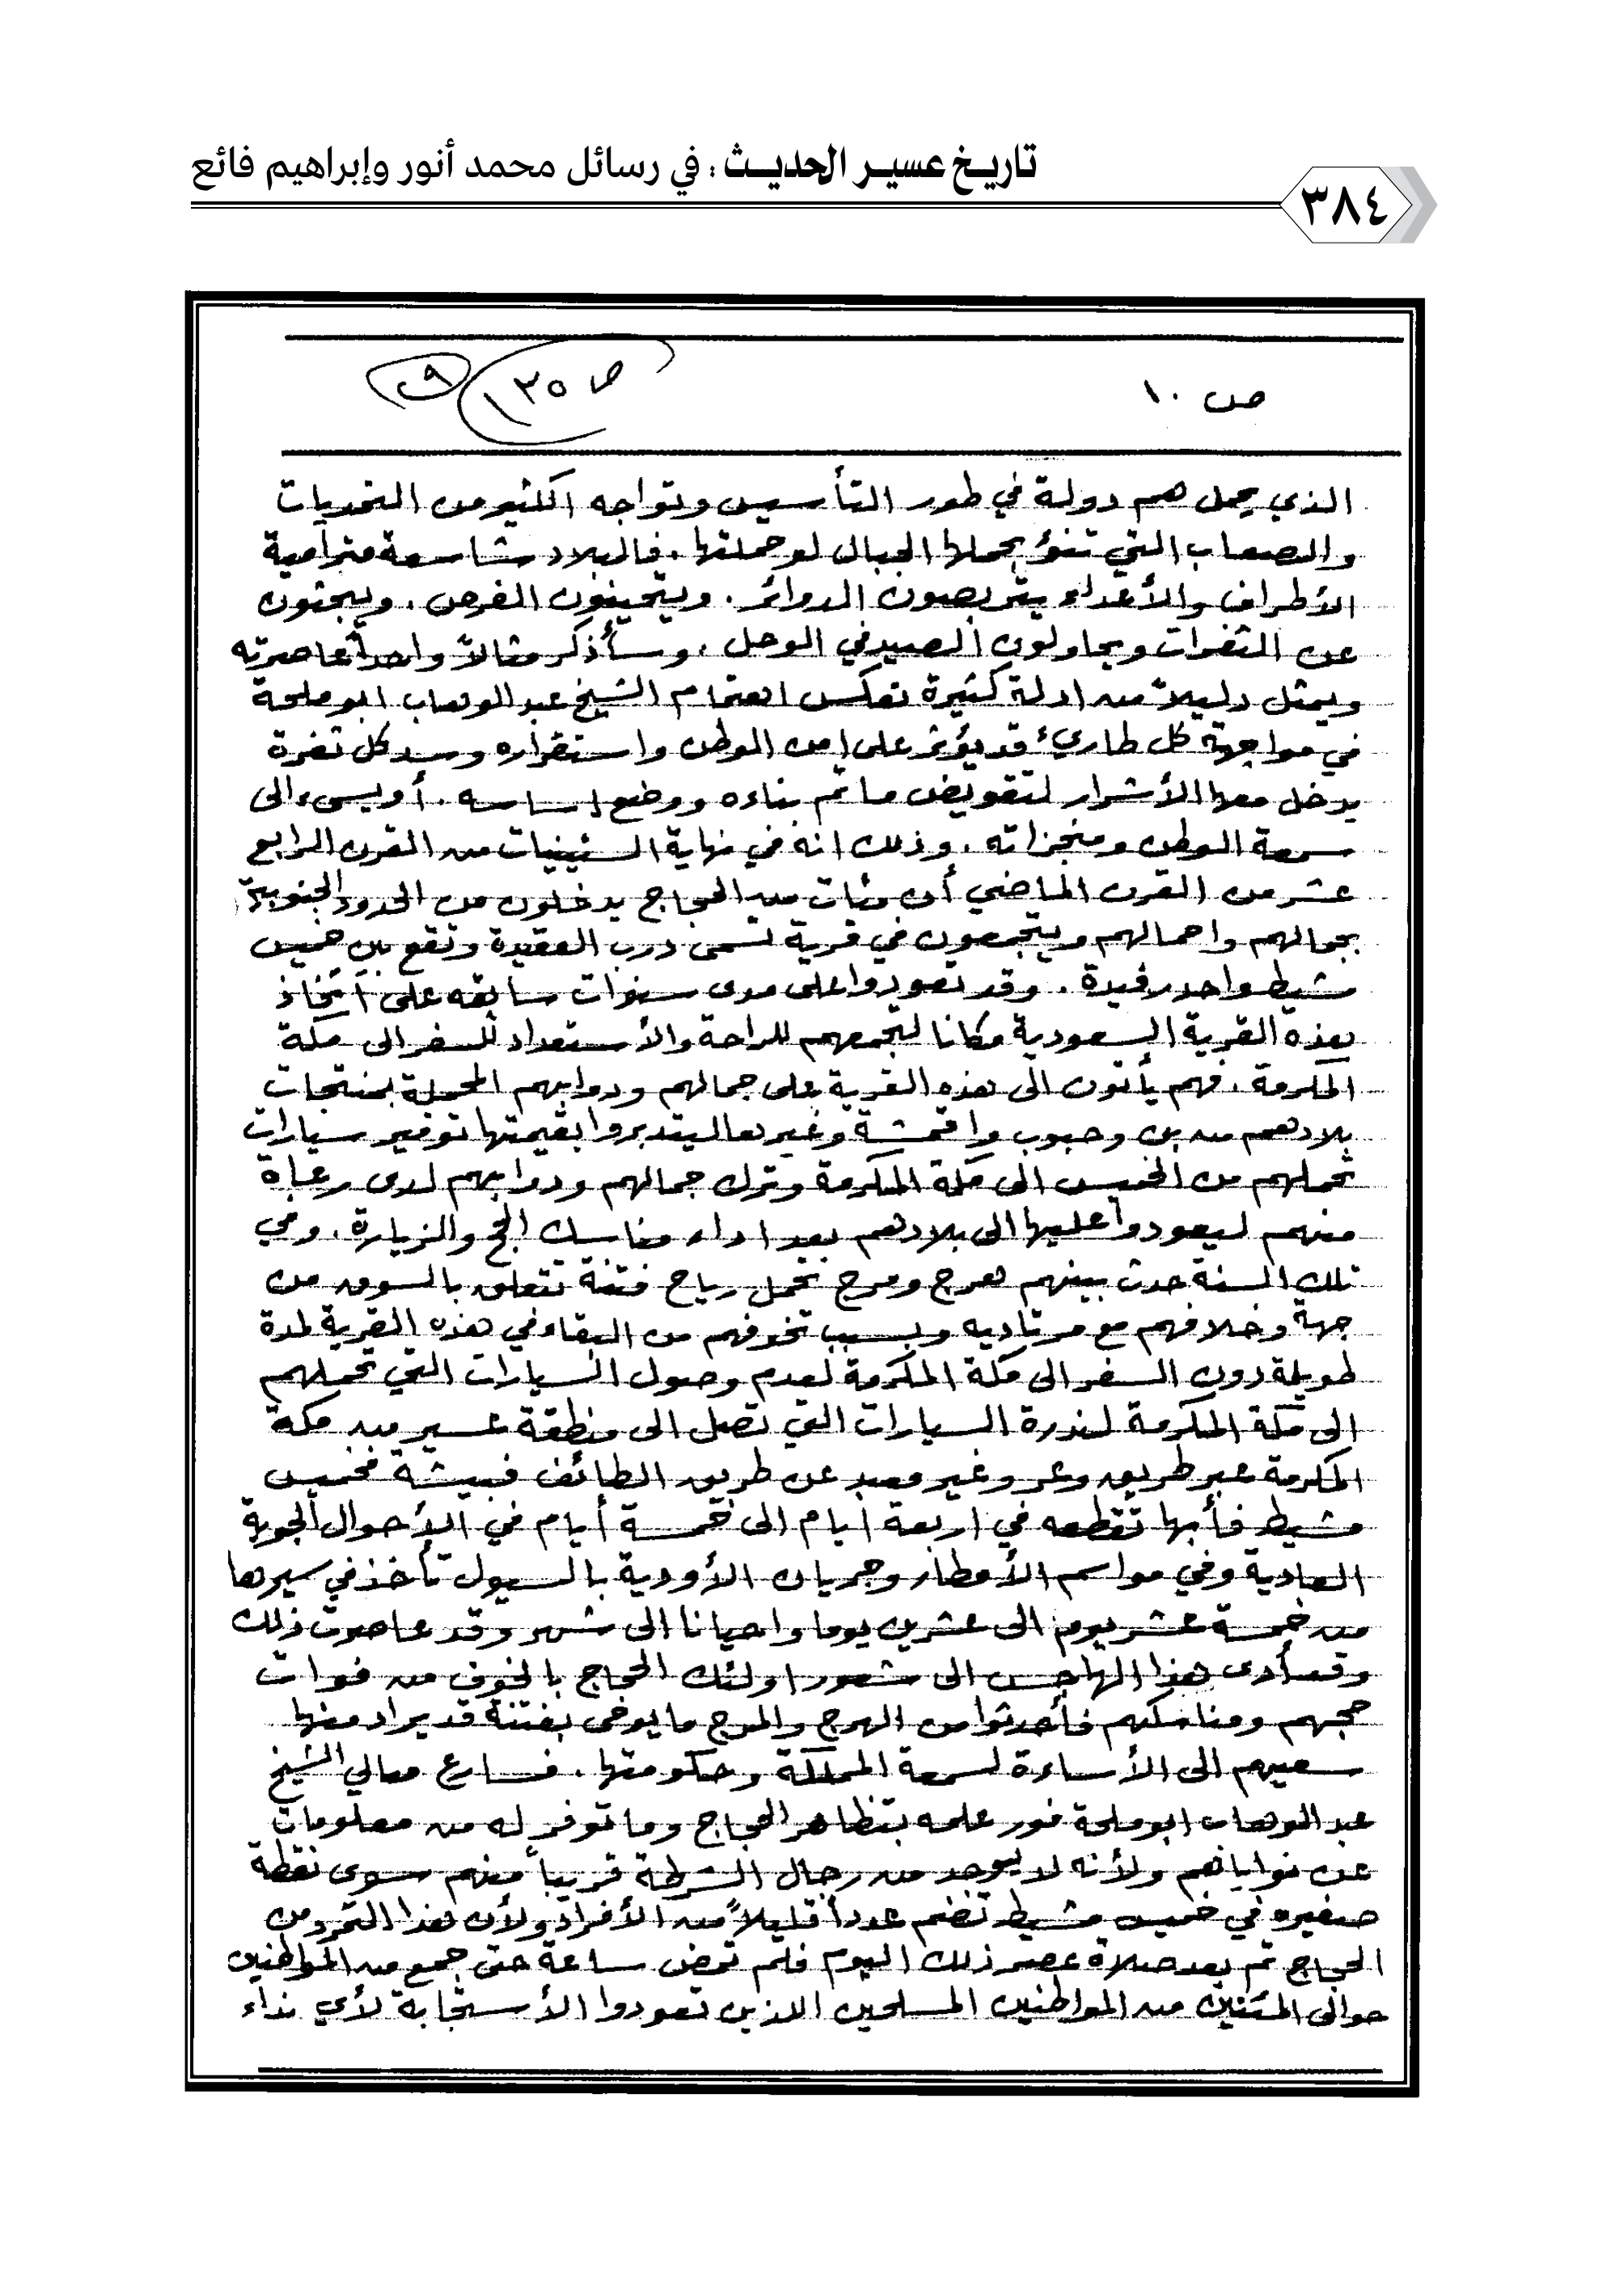 تاريخ عسير الحديث : في رسائل محمد أنور وإبراهيم فائع
٣٨٤
ص ١٠
ص ١٣٥
الذي يحمل هم دولة في طور التأسيس وتواجه الكثير من التحديات
والصعاب التي تنوؤ بحملها الجبال لو حملتها . فالبلاد شاسعة مترامية
الأطراف والأعداء يتربصون الدوائر . ويتحينون الفرص . ويبحثون
عن الثغرات ويحاولون الصيد في الوحل . وسأذكر مثالاً واحداً عاصرته
ويمثل دليلاً من ادلة كثيرة تعكس اهتمام الشيخ عبدالوهاب ابوملحة
في مواجهة كل طاريء قد يؤثر على امن الوطن واستقراره وسد كل ثغرة
يدخل معها الأشرار لتقويض ما تم بناءه ووضع اساسه . أو يسيء الى
سمعة الوطن ومنجزاته . وذلك انه في نهاية الستينيات من القرن الرابع
عشر من القرن الماضي أن مئات من الحجاج يدخلون من الحدود الجنوبية
بجمالهم واحمالهم ويتجمعون في قرية تسمى درب العقيدة وتقع بين خميس
مشيط واحد رفيدة . وقد تعودوا على مدى سنوات سابقه على اتخاذ
هذه القرية السعودية مكانا لتجمعهم للراحة والأستعداد للسفر الى مكة
المكرمة . فهم يأتون الى هذه القرية على جمالهم ودوابهم المحملة بمنتجات
بلادهم من بن وحبوب واقمشة وغيرها ليتدبروا بقيمتها توفير سيارات
تحملهم من الخميس الى مكة المكرمة وترك جمالهم ودوابهم لدى رعاة
منهم ليعودوا عليها الى بلادهم بعد اداء مناسك الحج والزيارة . وفي
تلك السنة حدث بينهم هرج ومرج تحمل رياح فتنة تتعلق بالسوق من
جهة وخلافهم مع مرتاديه وبسبب تخوفهم من البقاء في هذه القرية لمدة
طويلة دون السفر الى مكة المكرمة لعدم وصول السيارات التي تحملهم
الى مكة المكرمة لندرة السيارات التي تصل الى منطقة عسير من مكة
المكرمة عبر طريق وعر وغير معبد عن طريق الطائف فبيشة فخميس
مشيط فأبها تقطعه في اربعة ايام الى خمسة أيام في الأحوال الجوية
العادية وفي مواسم الأمطار وجريان الأودية بالسيول تأخذ في سيرها
من خمسة عشر يوم الى عشرين يوما واحيانا الى شهر وقد عاصرت ذلك
وقد أدى هذا الهاجس الى شعور اولئك الحجاج بالخوف من فوات
حجهم ومناسكهم فأحدثوا من الهرج والمرج ما يوحي بفتنة قد يراد منها
سعيهم الى الأساءة لسمعة المملكة وحكومتها . فسارع معالي الشيخ
عبدالوهاب ابوملحة فور علمه بتظاهر الحجاج وما توفر له من معلومات
عن نواياهم ولأنه لا يوجد من رجال الشرطة قريباً منهم سوى نقطة
صغيره في خميس مشيط تضم عدداً قليلاً من الأفراد ولأن هذا التمرد من
الحجاج تم بعد صلاة عصر ذلك اليوم فلم تمض ساعة حتى جمع من المواطنين
حوالى المئتين من المواطنين المسلحين اللذين تعودوا الأستجابة لأي نداء